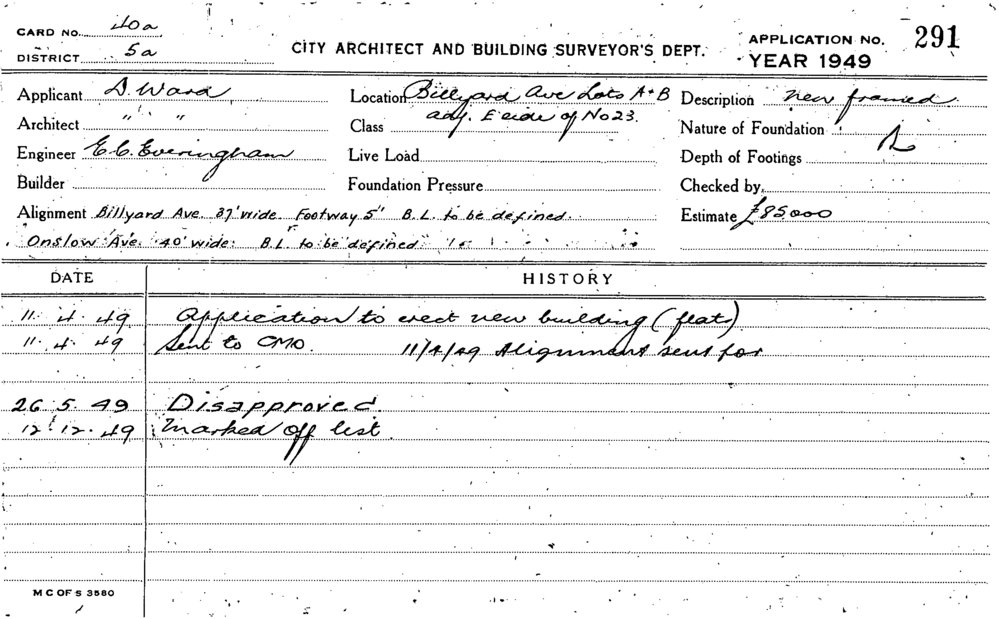 CARD NO. 40a
DISTRICT 5a
CITY ARCHITECT AND BUILDING SURVEYOR'S DEPT.
APPLICATION NO. 291
YEAR 1949
Applicant D. Ward
Location Billyard Ave Lots A+B
adj. E side of No 23.
Description new framed
Architect " "
Class
Nature of Foundation
Engineer E.C. Everingham
Live Load
Depth of Footings
Builder
Foundation Pressure
Checked by
Alignment Billyard Ave. 37' wide. Footway 5" B.L. to be defined.
Estimate £85000
Onslow Ave. 40' wide. B.L. to be defined
DATE HISTORY
11. 4. 49 Application to erect new building (flat)
11. 4. 49 Sent to CMO. 11/4/49 Alignment sent for
26. 5. 49 Disapproved.
12. 12. 49 Marked off list.
M C OF S 3580